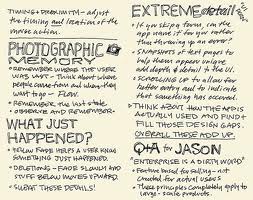 TIMING + PROXIMITY – adjust
the timing and location of the
undo action.
PHOTOGRAPHIC
MEMORY
• REMEMBER WHERE THE USER
WAS LAST – Think about where
people come from and when they
want to go – Flow.
• Remember the last state
• OBSERVE AND REMEMBER
WHAT JUST
HAPPENED?
• Yellow Fade helps a user know
something just happened.
• DELETIONS – FADE slowly and
stuff below moves upward
• Sweat these details!
EXTREME detail
• If you skip a form, can the
app name it for you rather
than throwing up an error?
• Snapshots of text pages to
help them appear unique
add depth & detail to the UI.
• SCROLLING UP to allow for
better entry and to indicate
that something has occurred.
• THINK ABOUT HOW THE APP IS
ACTUALLY USED AND FIND &
FILL THOSE DESIGN GAPS.
OVERALL THESE ADD UP.
Q+A for JASON
"ENTERPRISE IS A DIRTY WORD"
• Feature based for selling – not
created for actual users
• These principles completely apply to
large-scale products.